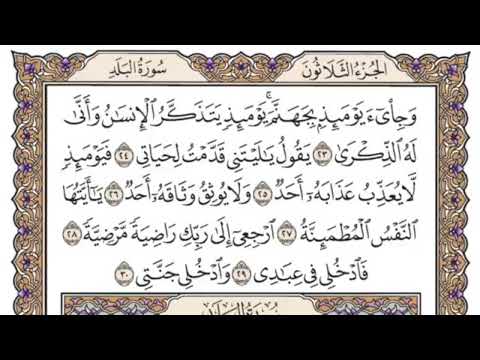 سُورَةُ الْبَلَدِ الجُزْءُ الثَّلَاثُونَ
وَجِا۟ىٓءَ يَوْمَئِذِۭ بِجَهَنَّمَ ۚ يَوْمَئِذٍ يَتَذَكَّرُ ٱلْإِنسَٰنُ وَأَنَّىٰ
لَهُ ٱلذِّكْرَىٰ ٢٣ يَقُولُ يَٰلَيْتَنِى قَدَّمْتُ لِحَيَاتِى ٢٤ فَيَوْمَئِذٍ
لَّا يُعَذِّبُ عَذَابَهُۥٓ أَحَدٌ ٢٥ وَلَا يُوثِقُ وَثَاقَهُۥٓ أَحَدٌ ٢٦ يَٰٓأَيَّتُهَا
ٱلنَّفْسُ ٱلْمُطْمَئِنَّةُ ٢٧ ٱرْجِعِىٓ إِلَىٰ رَبِّكِ رَاضِيَةً مَّرْضِيَّةً ٢٨
فَٱدْخُلِى فِى عِبَٰدِى ٢٩ وَٱدْخُلِى جَنَّتِى ٣٠